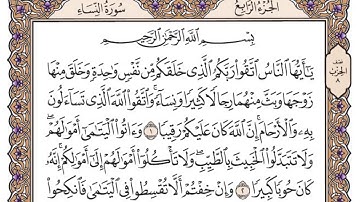 سُورَةُ النِّسَاءِ
الجُزْءُ الرَّابِعُ
بِسْمِ اللَّهِ الرَّحْمَٰنِ الرَّحِيمِ
يَٰٓأَيُّهَا النَّاسُ اتَّقُوا رَبَّكُمُ الَّذِى خَلَقَكُم مِّن نَّفْسٍ وَٰحِدَةٍ وَخَلَقَ مِنْهَا
زَوْجَهَا وَبَثَّ مِنْهُمَا رِجَالًا كَثِيرًا وَنِسَآءً ۚ وَاتَّقُوا اللَّهَ الَّذِى تَسَآءَلُونَ
بِهِۦ وَالْأَرْحَامَ ۚ إِنَّ اللَّهَ كَانَ عَلَيْكُمْ رَقِيبًا ١ وَءَاتُوا الْيَتَٰمَىٰٓ أَمْوَٰلَهُمْ ۖ
وَلَا تَتَبَدَّلُوا الْخَبِيثَ بِالطَّيِّبِ ۖ وَلَا تَأْكُلُوٓا أَمْوَٰلَهُمْ إِلَىٰٓ أَمْوَٰلِكُمْ ۚ إِنَّهُۥ
كَانَ حُوبًا كَبِيرًا ٢ وَإِنْ خِفْتُمْ أَلَّا تُقْسِطُوا فِى الْيَتَٰمَىٰ فَانكِحُوا